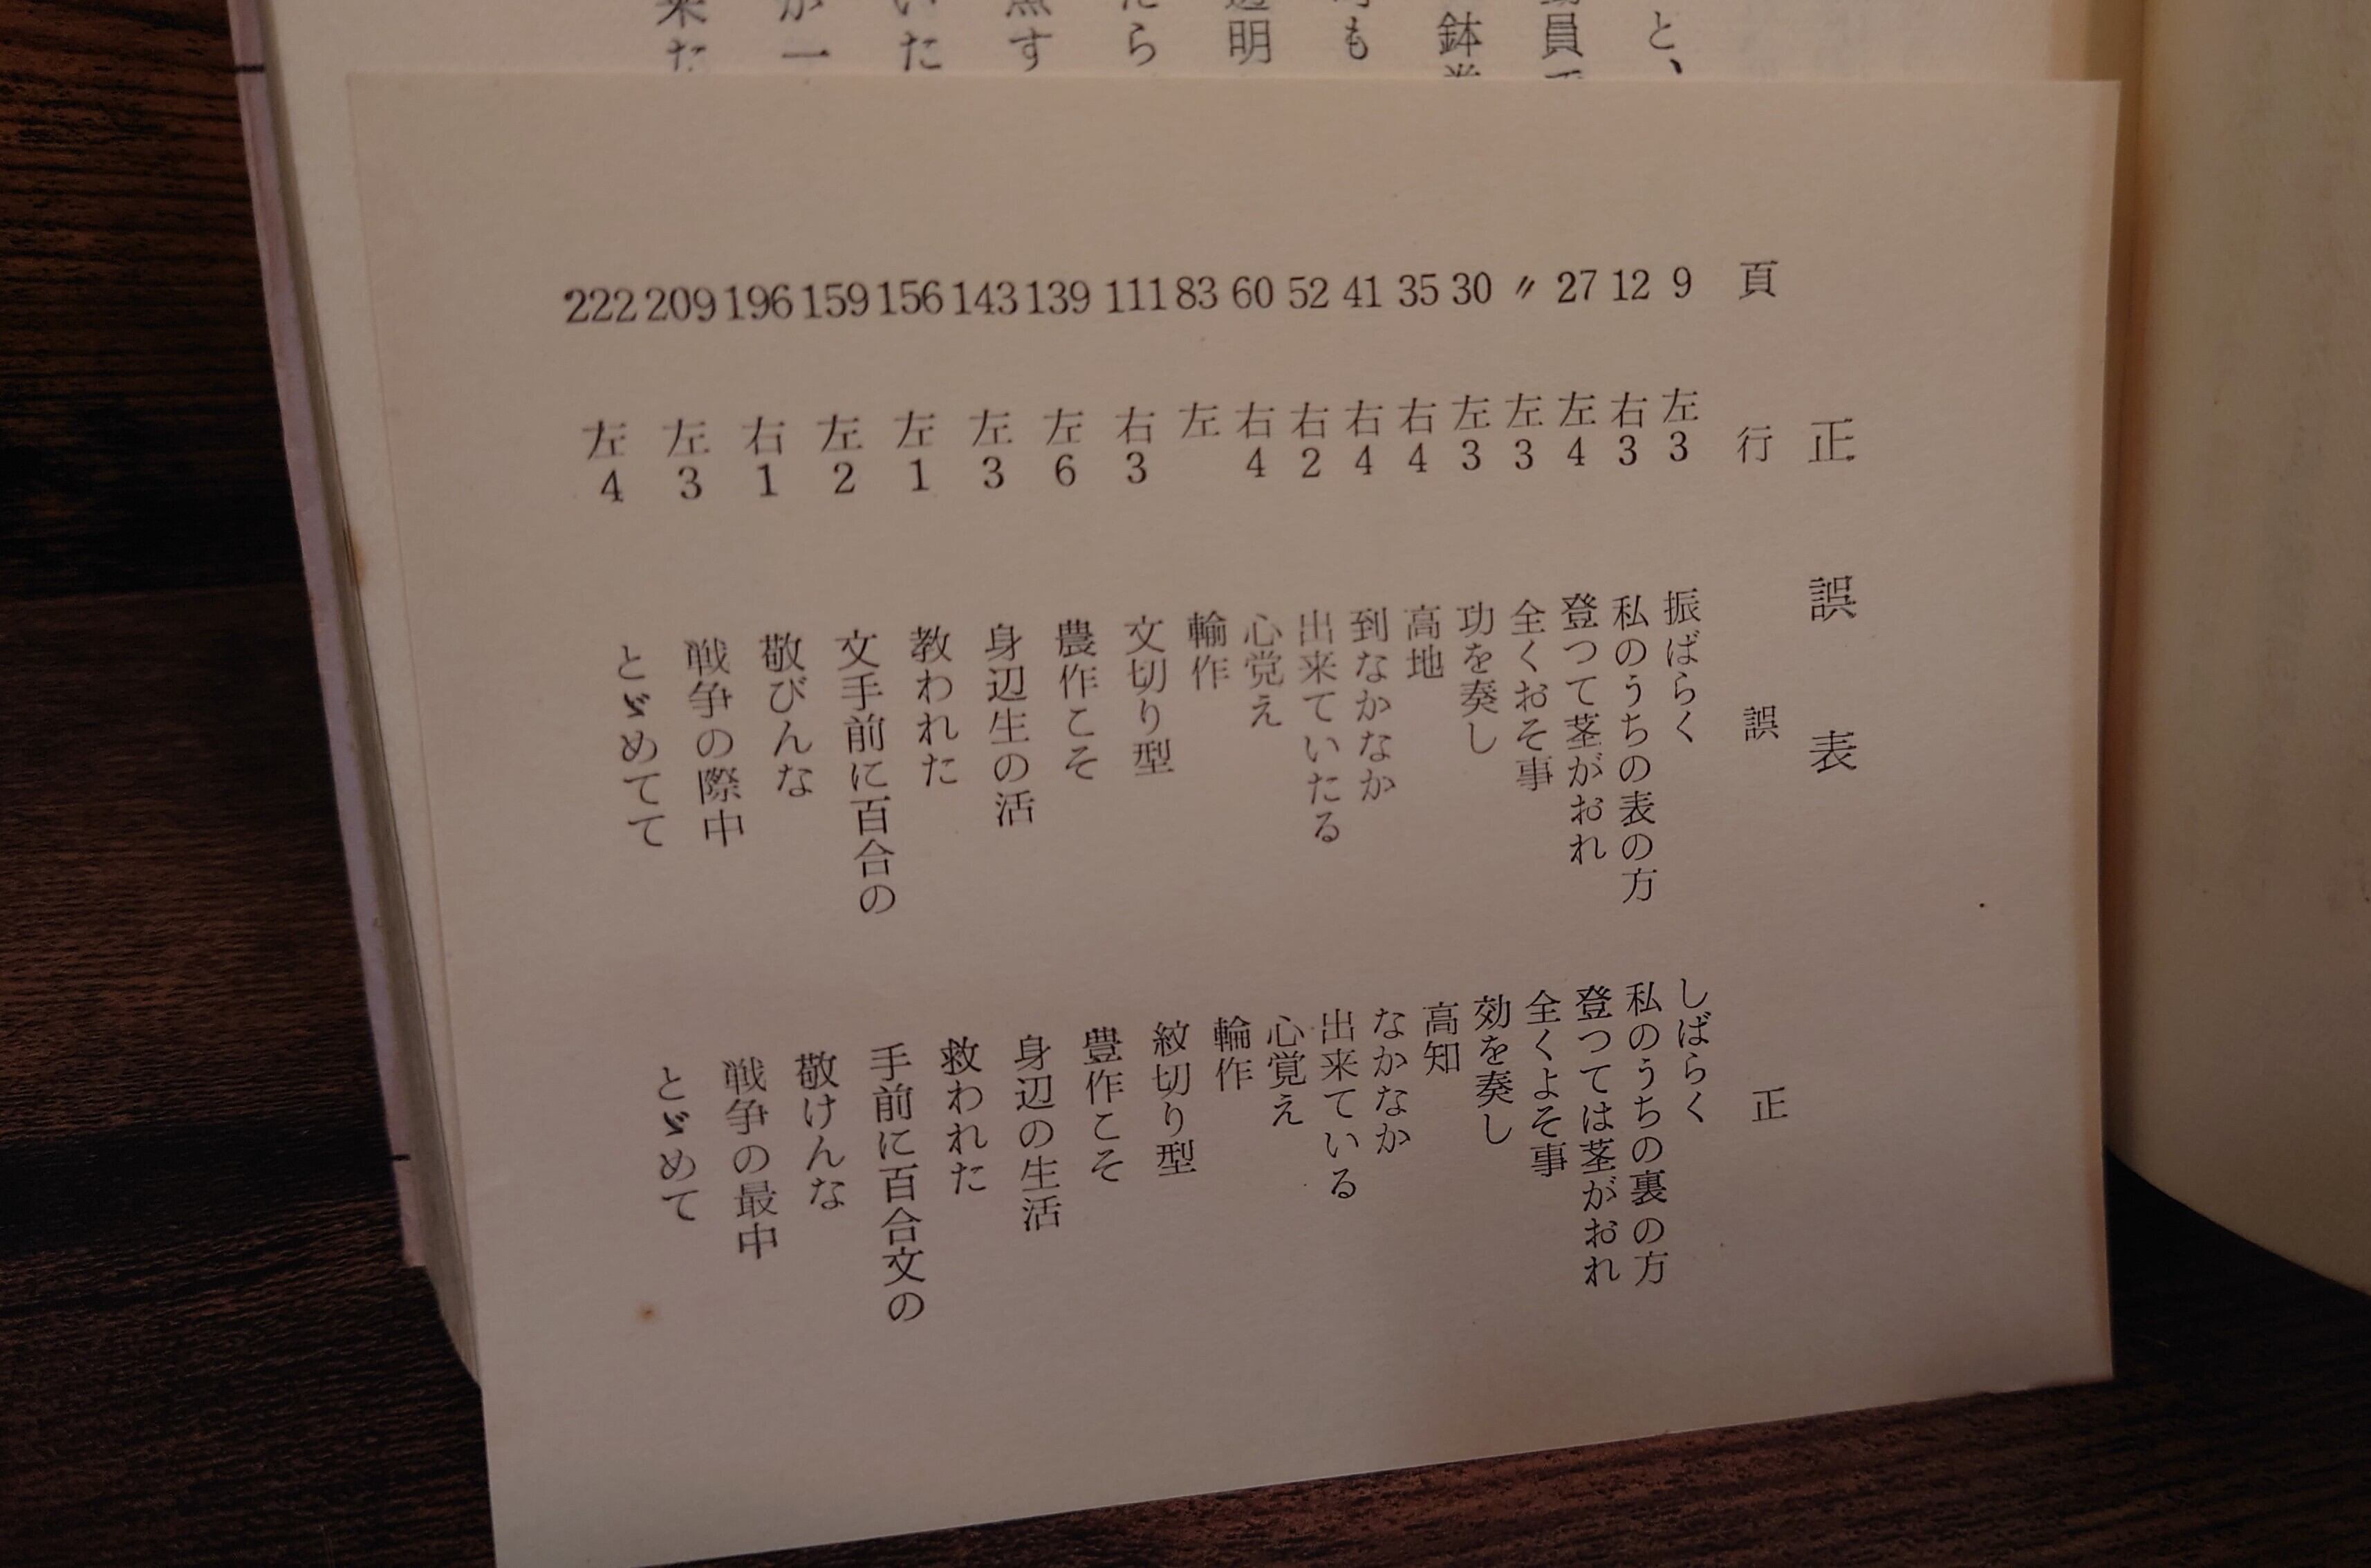 と、
員
鉢
も
明
ら
す
いた
が一
来た
正誤表
頁 行 誤 正
9 左3 振ばらく しばらく
12 右3 私のうちの表の方 私のうちの裏の方
27 左4 登つて茎がおれ 登つては茎がおれ
〃 左3 全くおそ事 全くよそ事
30 左3 功を奏し 効を奏し
35 右4 高地 高知
41 右4 到なかなか なかなか
52 右2 出来ていたる 出来ている
60 右4 心覚え 心覚え
83 左 輪作 輪作
111 右3 文切り型 紋切り型
139 左6 農作こそ 豊作こそ
143 左3 身辺生の活 身辺の生活
156 左1 教われた 救われた
159 左2 文手前に百合の 手前に百合文の
196 右1 敬びんな 敬けんな
209 左3 戦争の際中 戦争の最中
222 左4 とゞめてて とゞめて